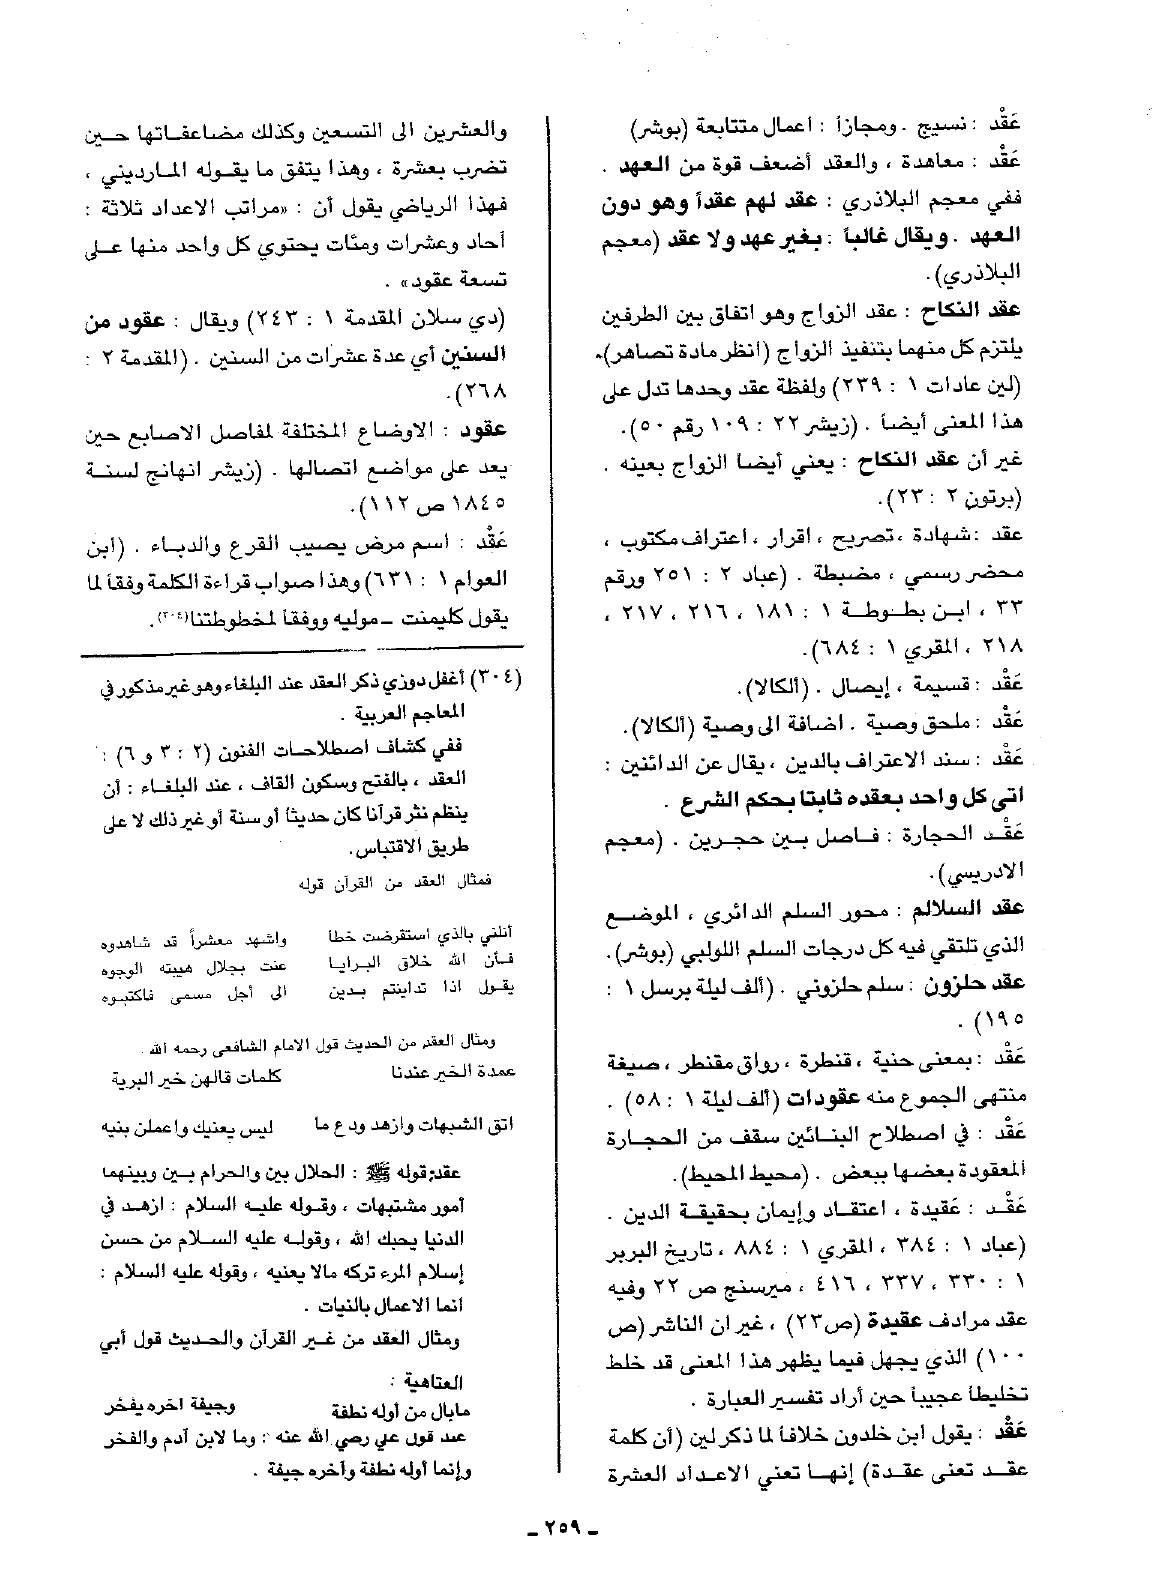 عَقْد : نسيج . ومجازاً : أعمال متتابعة (بوشر)
عَقْد : معاهدة ، والعقد أضعف قوة من العهد .
ففي معجم البلاذري : عقد لهم عقداً وهو دون
العهد . ويقال غالباً : بغير عهد ولا عقد (معجم
البلاذري).
عقد النكاح : عقد الزواج وهو اتفاق بين الطرفين
يلتزم كل منهما بتنفيذ الزواج (انظر مادة تصاهر).
(لين عادات ١ : ٢٣٩) ولفظة عقد وحدها تدل على
هذا المعنى أيضاً . (زيشر ٢٢ : ١٠٩ رقم ٥٠).
غير أن عقد النكاح : يعني أيضا الزواج بعينه .
(برتون ٢ : ٢٣).
عقد : شهادة ، تصريح ، اقرار ، اعتراف مكتوب ،
محضر رسمي ، مضبطة . (عباد ٢ : ٢٥١ ورقم
٣٣ ، ابن بطوطة ١ : ١٨١ ، ٢١٦ ، ٢١٧ ،
٢١٨ ، المقري ١ : ٦٨٤).
عَقْد : قسيمة ، إيصال . (ألكالا).
عَقْد : ملحق وصية . اضافة الى وصية (ألكالا).
عَقْد : سند الاعتراف بالدين ، يقال عن الدائنين :
اتى كل واحد بعقده ثابتا بحكم الشرع .
عَقْد الحجارة : فاصل بين حجرين . (معجم
الادريسي).
عقد السلالم : محور السلم الدائري ، الموضع
الذي تلتقي فيه كل درجات السلم اللولبي (بوشر).
عقد حلزون : سلم حلزوني . (ألف ليلة برسل ١ :
١٩٥) .
عَقْد : بمعنى حنية ، قنطرة ، رواق مقنطر ، صيغة
منتهى الجموع منه عقودات (ألف ليلة ١ : ٥٨) .
عَقْد : في اصطلاح البنائين سقف من الحجارة
المعقودة بعضها ببعض . (محيط المحيط).
عَقْد : عَقيدة ، اعتقاد وإيمان بحقيقة الدين .
(عباد ١ : ٣٨٤ ، المقري ١ : ٨٨٤ ، تاريخ البربر
١ : ٣٣٠ ، ٣٣٧ ، ٤١٦ ، ميرسنج ص ٢٢ وفيه
عقد مرادف عقيدة (ص٢٣) ، غير ان الناشر (ص
١٠٠) الذي يجهل فيما يظهر هذا المعنى قد خلط
تخليطاً عجيباً حين أراد تفسير العبارة .
عَقْد : يقول ابن خلدون خلافاً لما ذكر لين (أن كلمة
عقد تعنى عقدة) إنها تعني الاعداد العشرة
والعشرين الى التسعين وكذلك مضاعفاتها حين
تضرب بعشرة ، وهذا يتفق ما يقوله المارديني ،
فهذا الرياضي يقول أن : «مراتب الاعداد ثلاثة :
أحاد وعشرات ومئات يحتوي كل واحد منها على
تسعة عقود» .
(دي سلان المقدمة ١ : ٢٤٣) ويقال : عقود من
السنين أي عدة عشرات من السنين . (المقدمة ٢ :
٢٦٨).
عقود : الاوضاع المختلفة لمفاصل الاصابع حين
يعد على مواضع اتصالها . (زيشر انهانج لسنة
١٨٤٥ ص ١١٢).
عَقْد : اسم مرض يصيب القرع والدباء . (ابن
العوام ١ : ٦٣١) وهذا صواب قراءة الكلمة وفقاً لما
يقول كليمنت ــ موليه ووفقاً لمخطوطتنا(٣٠٤).
(٣٠٤) أغفل دوزي ذكر العقد عند البلغاء وهو غير مذكور في
المعاجم العربية .
ففي كشاف اصطلاحات الفنون (٢ : ٣ و ٦) :
العقد ، بالفتح وسكون القاف ، عند البلغاء : أن
ينظم نثر قرآنا كان حديثاً أو سنة أو غير ذلك لا على
طريق الاقتباس.
فمثال العقد من القرآن قوله
أنلني بالذي استقرضت خطا واشهد معشراً قد شاهدوه
فأن الله خلاق البرايا عنت بجلال هيبته الوجوه
يقول اذا تداينتم بدين الى أجل مسمى فاكتبوه
ومثال العقد من الحديث قول الامام الشافعي رحمه الله .
عمدة الخير عندنا كلمات قالهن خير البرية
اتق الشبهات وازهد ودع ما ليس يعنيك واعملن بنيه
عقد قوله ﷺ : الحلال بين والحرام بين وبينهما
أمور مشتبهات ، وقوله عليه السلام : ازهد في
الدنيا يحبك الله ، وقوله عليه السلام من حسن
إسلام المرء تركه مالا يعنيه ، وقوله عليه السلام :
انما الاعمال بالنيات .
ومثال العقد من غير القرآن والحديث قول أبي
العتاهية :
مابال من أوله نطفة وجيفة اخره يفخر
عند قول علي رضي الله عنه : وما لابن آدم والفخر
وإنما أوله نطفة وأخره جيفة .
ـ ٢٥٩ ـ